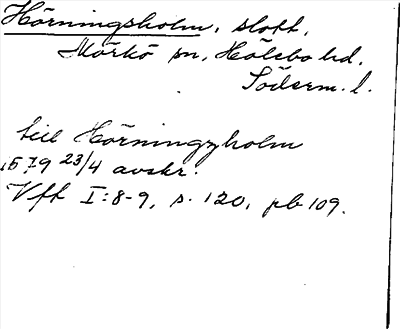 Hörningsholm, slott,
Mörkö sn, Hölebo hd,
Söderm. l.
till Hörningzholm
1579 23/4 avskr.
Vfk I:8-9, s. 120, pb 109.